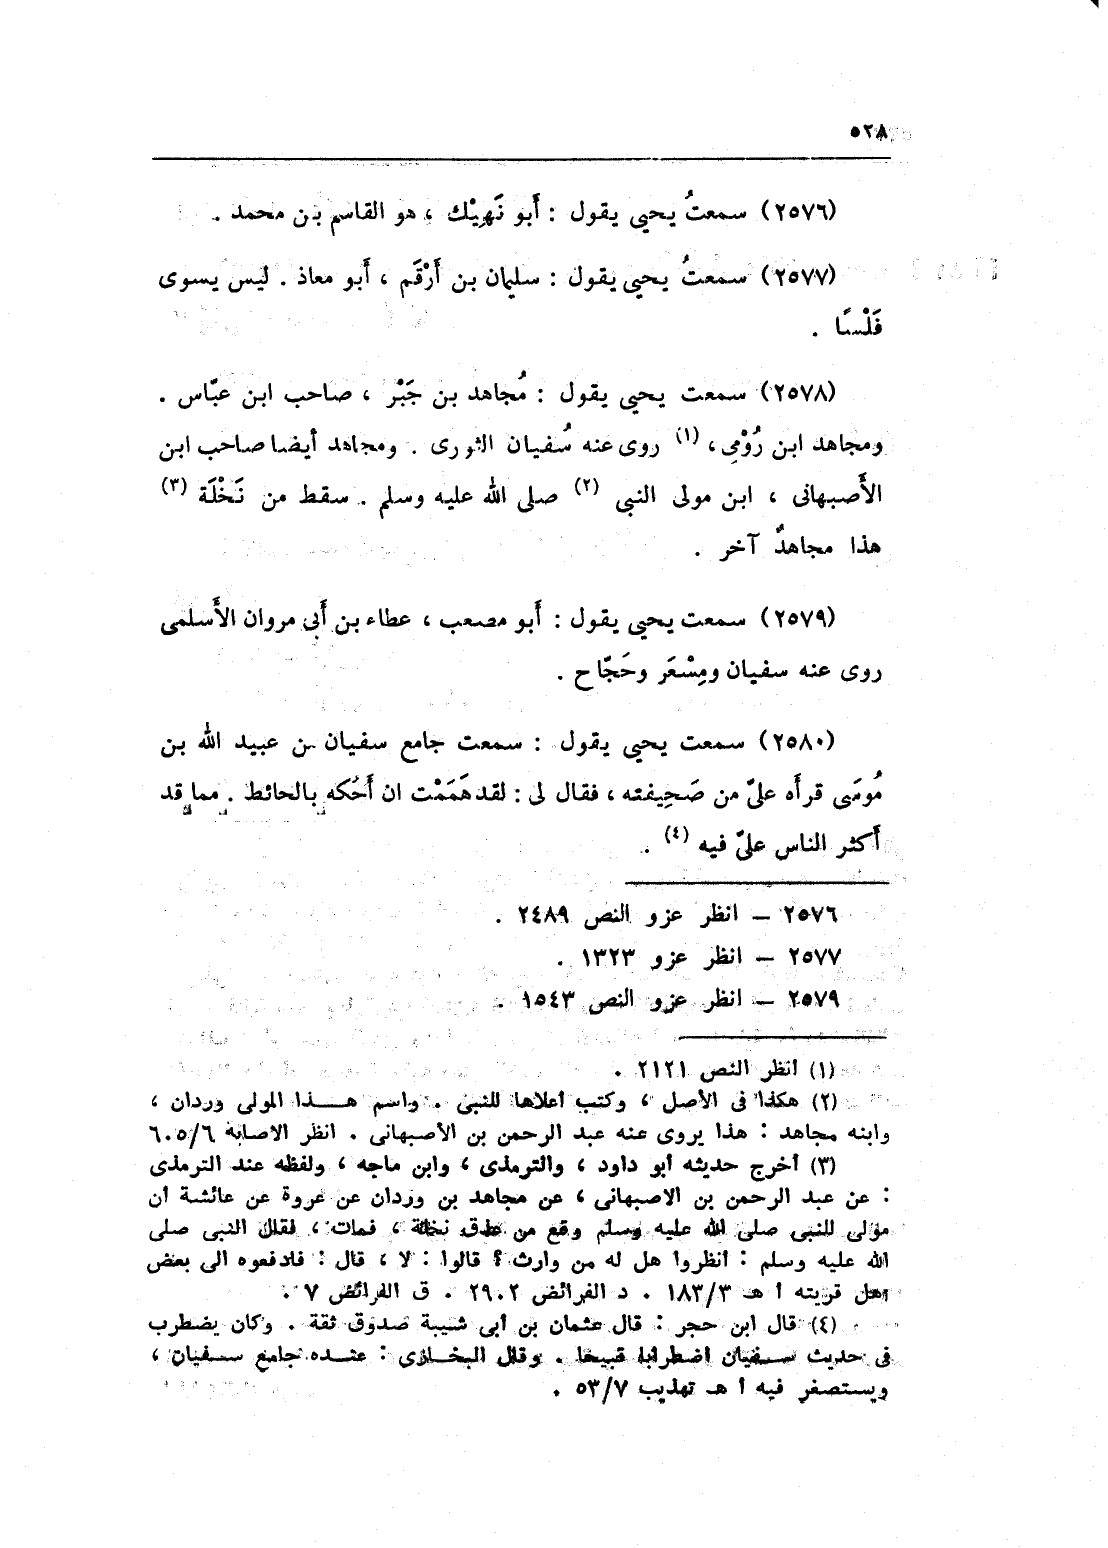 ٥٢٨
(٢٥٧٦) سمعتُ يحيى يقول : أَبو نَهِيْك ، هو القاسم بن محمد .
(٢٥٧٧) سمعتُ يحيى يقول : سليمان بن أَرْقَم ، أَبو معاذ . ليس يسوى
فَلْسًا .
(٢٥٧٨) سمعت يحيى يقول : مُجاهد بن جَبْر ، صاحب ابن عبّاس .
ومجاهد ابن رُوْمِى ، (١) روى عنه سُفيان الثورى . ومجاهد أيضا صاحب ابن
الأَصبهانى ، ابن مولى النبى (٢) صلى الله عليه وسلم . سقط من نَخْلَة (٣)
هذا مجاهدٌ آخر .
(٢٥٧٩) سمعت يحيى يقول : أَبو مصعب ، عطاء بن أَبى مروان الأَسلمى
روى عنه سفيان ومِسْعَر وحَجّاح .
(٢٥٨٠) سمعت يحيى يقول : سمعت جامع سفيان من عبيد الله بن
مُوسَى قرأَه علىّ من صَحِيفته ، فقال لى : لقد هَمَمْت ان أَحُكه بالحائط . مما قد
أَكثر الناس علىّ فيه (٤) .
٢٥٧٦ – انظر عزو النص ٢٤٨٩ .
٢٥٧٧ – انظر عزو ١٣٢٣ .
٢٥٧٩ – انظر عزو النص ١٥٤٣ .
(١) انظر النص ٢١٢١ .
(٢) هكذا فى الأصل ، وكتب أعلاها للنبى . واسم هـذا المولى وردان ،
وابنه مجاهد : هذا يروى عنه عبد الرحمن بن الأصبهانى . انظر الاصابة ٦٠٥/٦
(٣) أخرج حديثه أبو داود ، والترمذى ، وابن ماجه ، ولفظه عند الترمذى
: عن عبد الرحمن بن الاصبهانى ، عن مجاهد بن وردان عن عروة عن عائشة أن
مولى للنبى صلى الله عليه وسلم وقع من عذق نخلة ، فمات ، فقال النبى صلى
الله عليه وسلم : انظروا هل له من وارث ؟ قالوا : لا ، قال : فادفعوه الى بعض
أهل قريته أ هـ ١٨٣/٣ . د الفرائض ٢٩٠٢ . ق الفرائض ٧ .
(٤) قال ابن حجر : قال عثمان بن أبى شيبة صدوق ثقة . وكان يضطرب
فى حديث سفيان اضطرابا قبيحا . وقال البخارى : عنده جامع سفيان ،
ويستصغر فيه أ هـ تهذيب ٥٣/٧ .